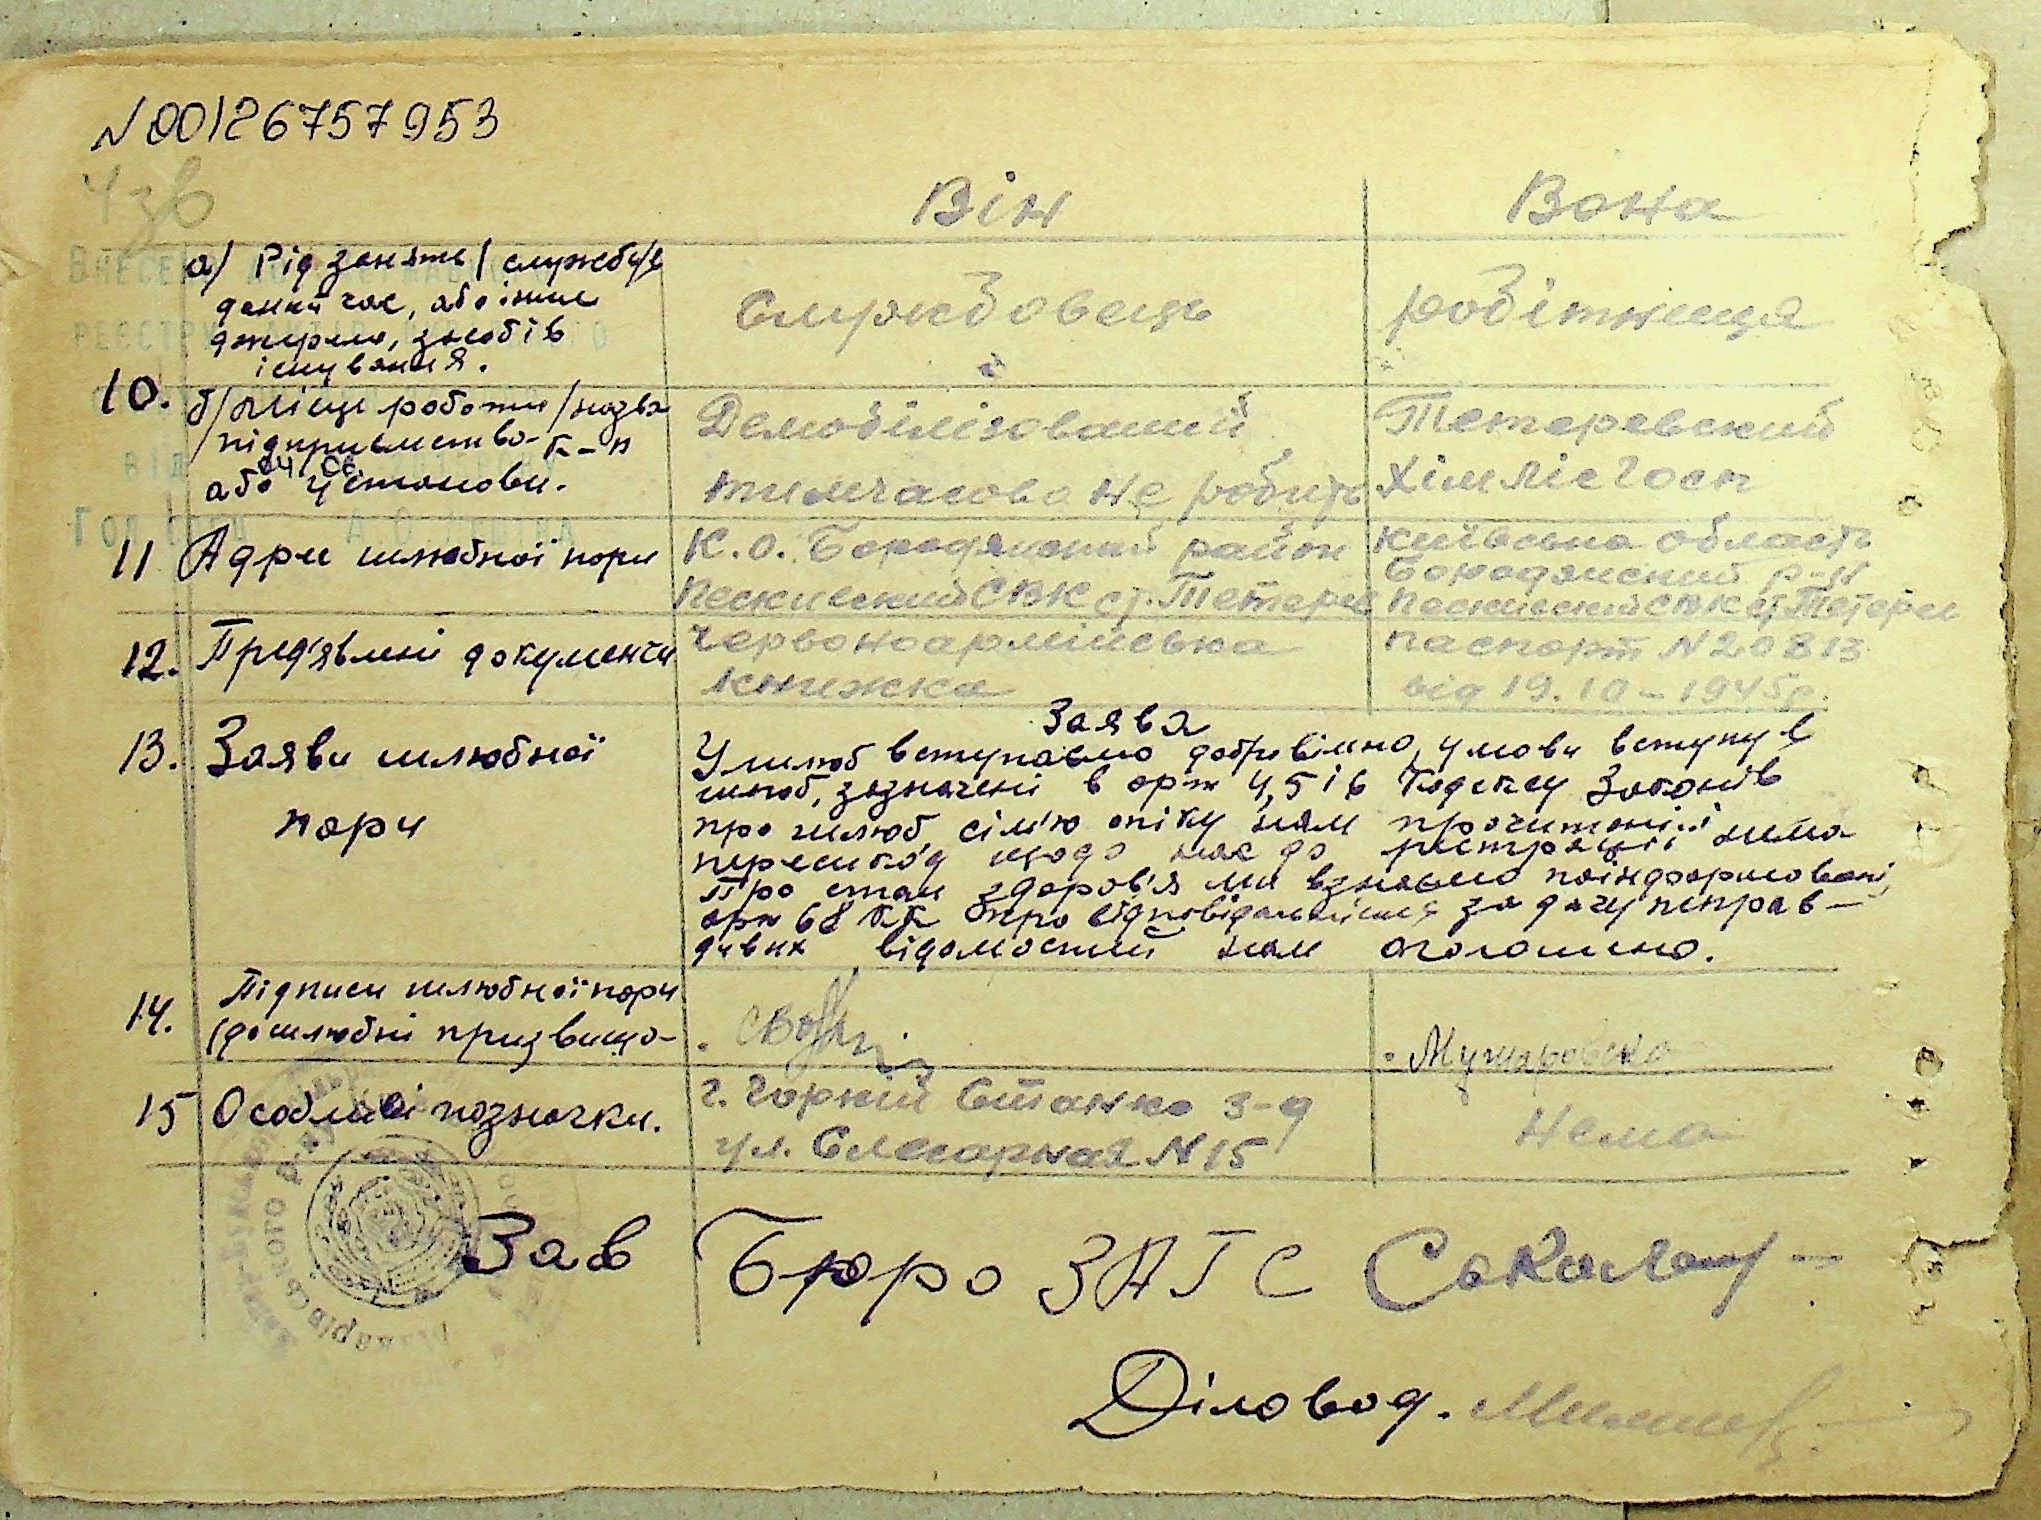 N 00126757953
Він Вона
а) Рід занять / служби/в
даний час, або інше
джерело, засобів
існування.
Службовець робітниця
10. б/ Місце роботи /назва
підприємство- к-п
або установи.
Демобілізований
тимчасово не робить
Тетеревский
Хімлісгосп
11 Адри шлюбної пари
К. о. Бородянский район
Пескиеский СВК ст. Тетерев
Київська область
Бородянский р-н
Пескиеский СВК ст. Тетерев
12. Пред'явлені документи
Червоноармійська
книжка
паспорт N 20813
від 19.10-1945р.
13. Заяви шлюбної
пари
Заява
У шлюб вступаємо добровільно, умови вступу в
шлюб, зазначені в арт 4,5 і 6 Кодексу Законів
про шлюб, сім'ю опіку нам прочитані і нема
перешкод щодо нас до реєстрації
Про стан здоров'я ми взаємно поінформовані,
арт 68 КК про відповідальність за дачу неправ-
дивих відомостей нам оголошено.
14. Підписи шлюбної пари
(дошлюбні призвища-
15 Особливі позначки.
г. Горкій Станко з-д
ул. Слесарная N 15
Нема
Зав Бюро ЗАГС
Діловод.